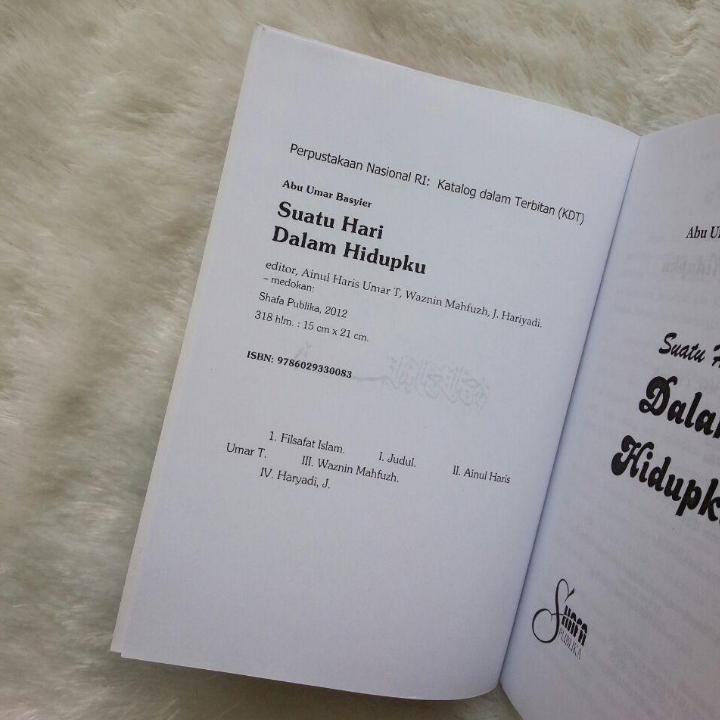 Perpustakaan Nasional RI: Katalog dalam Terbitan (KDT)
Abu Umar Basyier
Suatu Hari
Dalam Hidupku
editor, Ainul Haris Umar T, Waznin Mahfuzh, J. Hariyadi.
– medokan:
Shafa Publika, 2012
318 hlm. : 15 cm x 21 cm.
ISBN: 9786029330083
1. Filsafat Islam. I. Judul. II. Ainul Haris
Umar T. III. Waznin Mahfuzh.
IV. Haryadi, J.
Abu U
Suatu H
Dala
Hidupk
Shafa
PUBLIKA